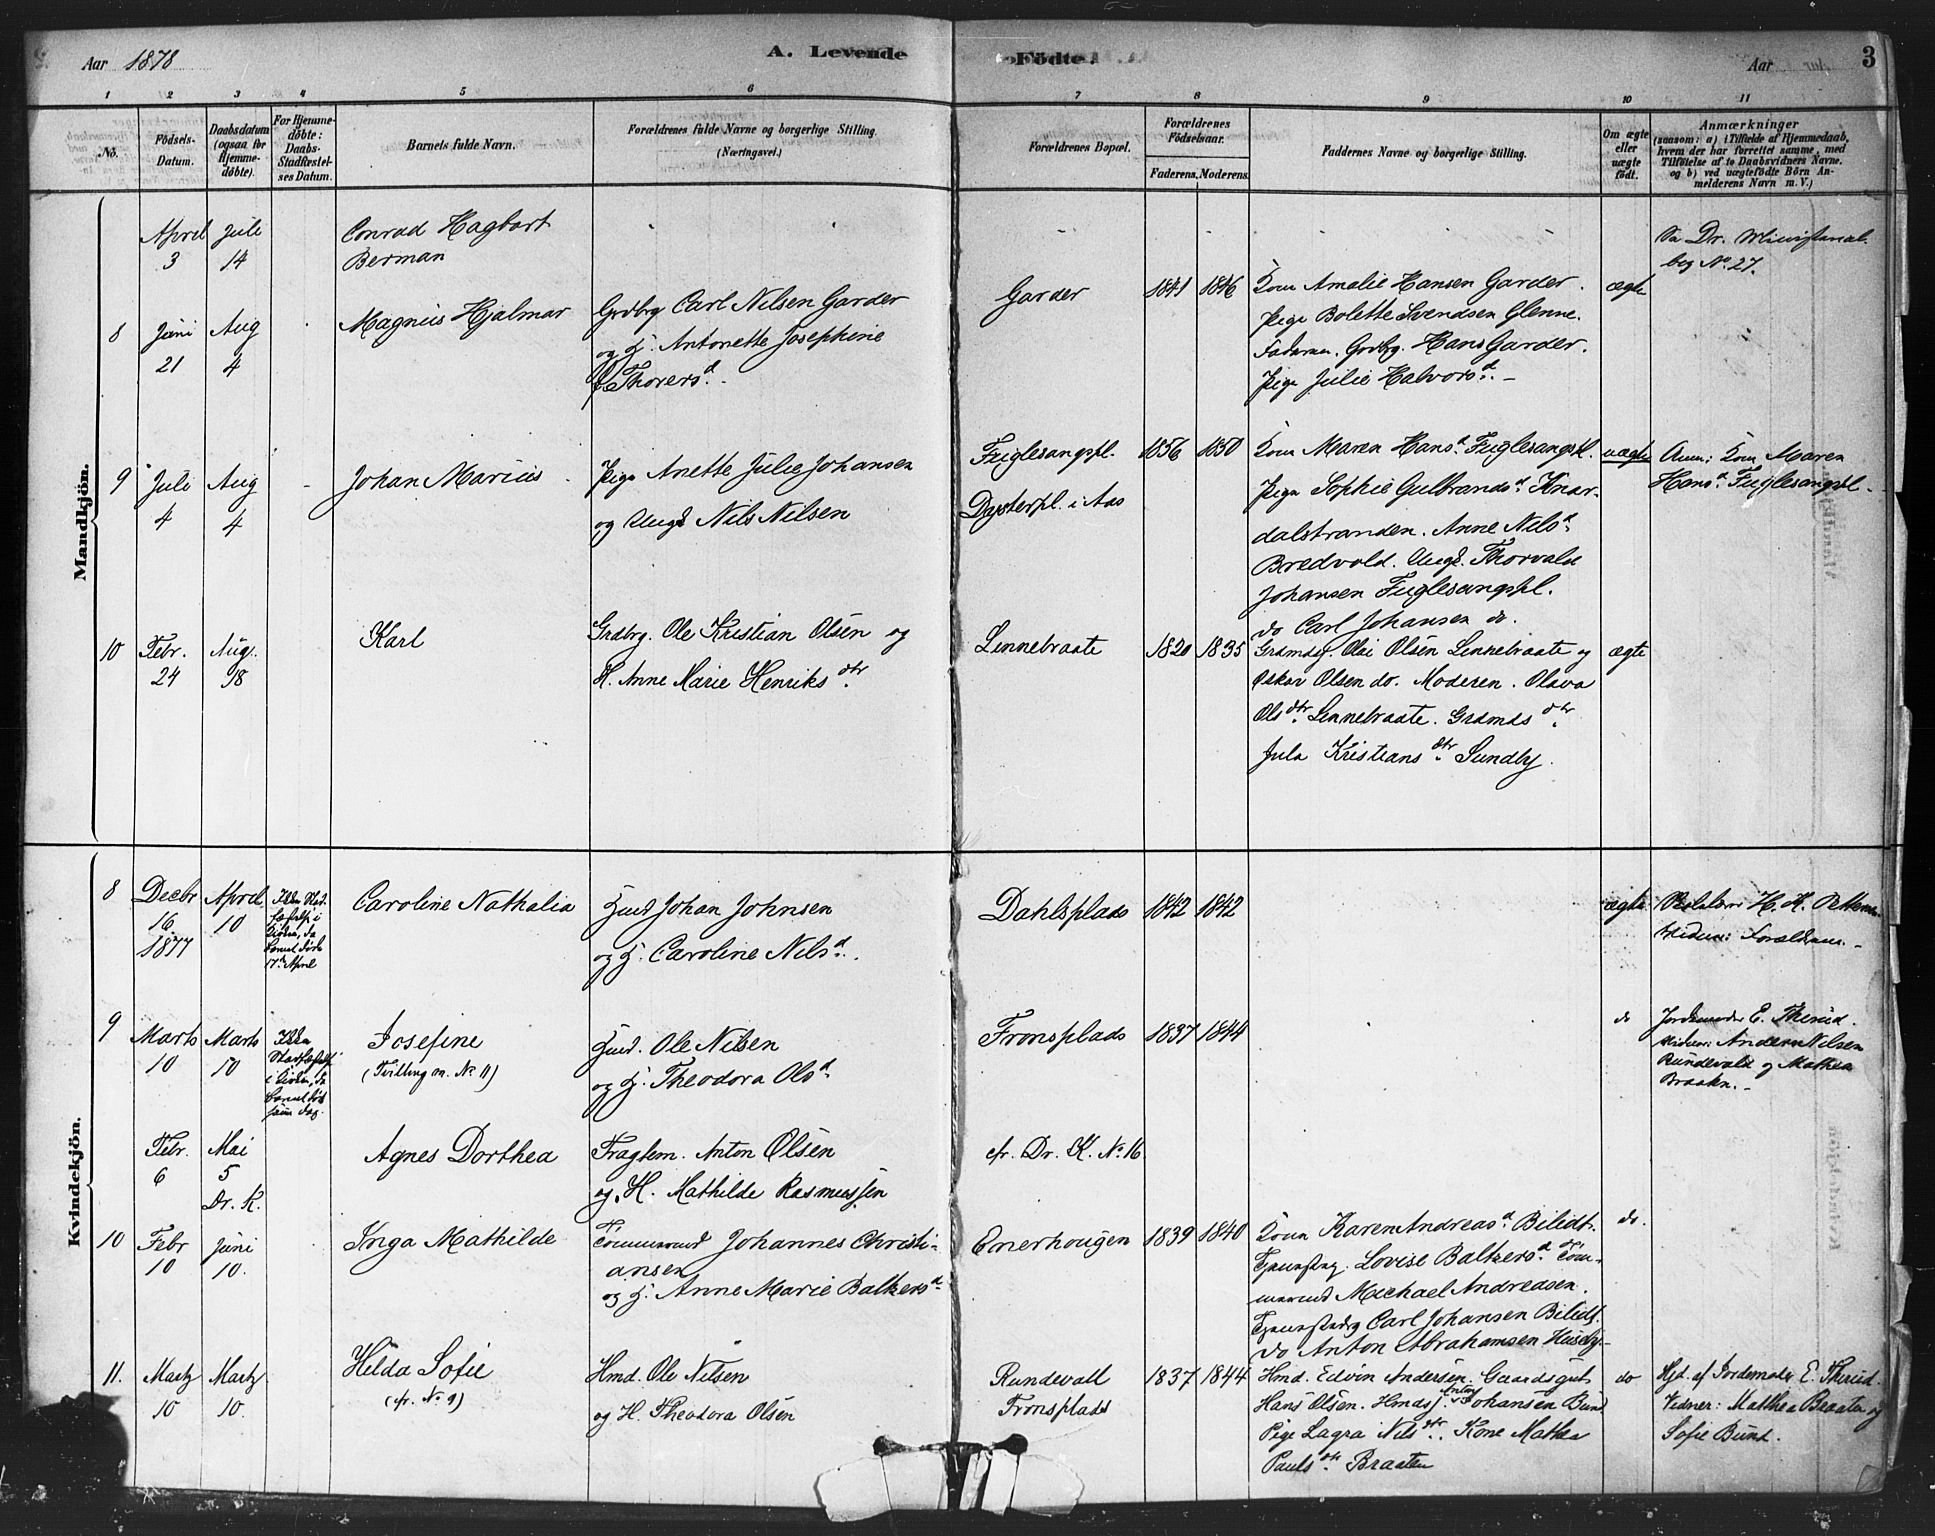 Aar 1878
A. Levende
Födte.
Aar
3
1 2 3 4 5 6 7 8 9 10 11
No.
Födsels-
Datum.
Daabsdatum
(ogsaa for
Hjemme-
döbte).
For Hjemme-
döbte:
Daabs-
Stadfæstel-
ses Datum.
Barnets fulde Navn.
Forældrenes fulde Navne og borgerlige Stilling.
(Næringsvei.)
Forældrenes Bopæl.
Forældrenes
Födselsaar.
Faderens. Moderens.
Faddernes Navne og borgerlige Stilling.
Om ægte
eller
uægte
födt.
Anmærkninger
(saasom: a) i Tilfælde af Hjemmedaab,
hvem der har forrettet samme, med
Tilföielse af to Daabsvidners Navne,
og b) ved uægtefödte Börn An-
melderens Navn m. V.)
Mandkjön.
April
3
Juli
14
Conrad Hagbart
Berman
Sa Dr. Ministerial
bog No 27.
8
Juni
21
Aug
4
Magnus Hjalmar
Grdbrg Carl Nilsen Garder
og H. Antonette Josephine
f. Thorersd.
Garder
1841
1846
Kone Amalie Hansen Garder.
Pige Bolette Svendsen Glenne.
Faderen. Grdbrg. Hans Garder.
Pige Julie Halvorsd.
ægte
9
Juli
4
Aug
4
Johan Marius
Pige Anette Julie Johansen
og Ungk Nils Nilsen
Fuglesangspl.
Dysterpl. i Aas
1856
1850
Kone Maren Hansd Fuglesangspl.
Pige Sophie Gulbrandsd. Knar-
dalstranden. Anne Nilsd.
Bredvold. Ungk. Thorvald
Johansen Fuglesangspl.
do Carl Johansen do.
uægte
Anm: Kone Maren
Hansd Fuglesangspl.
10
Febr.
24
Aug.
18
Karl
Grdbrg. Ole Kristian Olsen og
H. Anne Marie Henriksdtr.
Linnebraate
1820
1835
Grdmdsg. Olai Olsen Linnebraate og
Oskar Olsen do. Moderen. Olava
Olsdtr. Linnebraate. Grdmdsdtr.
Jula Kristiansdtr. Sundby.
ægte
Kvindekjön.
8
Decbr
16
1877
April
10
17de April
Caroline Nathalia
Johan Johnsen
og H. Caroline Nilsd.
Dahlsplads
1842
1842
ægte
H. H.
Vidner: Forældrene.
9
Marts
10
Marts
10
Josefine
(Tvilling m. No 11)
Hmd. Ole Nilsen
og H. Theodora Olsd.
Fronsplads
1837
1844
do
Jordemoder E. Therud.
Vidner: Anders Nilsen
Rundevold og Mathea
Braaten.
Febr.
6
Mai
5
Dr. K.
Agnes Dorthea
Fragtem. Anton Olsen
og H. Mathilde Rasmussen
cfr. Dr. K. No 16
10
Febr
10
Juni
10.
Inga Mathilde
Tömmermd Johannes Christi-
ansen
og H. Anne Marie Baltzersd.
Enerhougen
1839
1840
Kone Karen Andreasd. Bilidt.
Tjenestepg. Lovise Baltzersd. Töm-
mermd Michael Andreasen.
Carl Johansen Bilidt.
do Anton Abrahamsen Huseby.
do.
11.
Marts
10
Marts
10.
Hilda Sofie
(cfr. No 9)
Hmd. Ole Nilsen
og H. Theodora Olsen
Rundevall
Fronsplads
1837
1844
Hmd. Edvin Andersen. Gaardsgut
Hans Olsen. Hmds. Anton Johansen Bund
Pige Lagra Nilsdtr. Kone Mathea
Paulsdtr. Braaten
do
Hjd. af Jordemoder E. Therud.
Vidner: Matthea Braaten og
Sofie Bund.